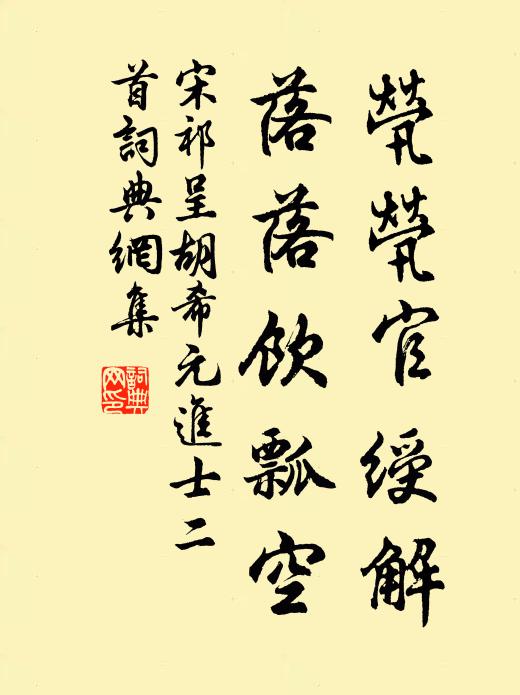 茕茕官綬解
落落飲瓢空
宋祁呈胡希元進士二
首詞典網集
詞典
网印